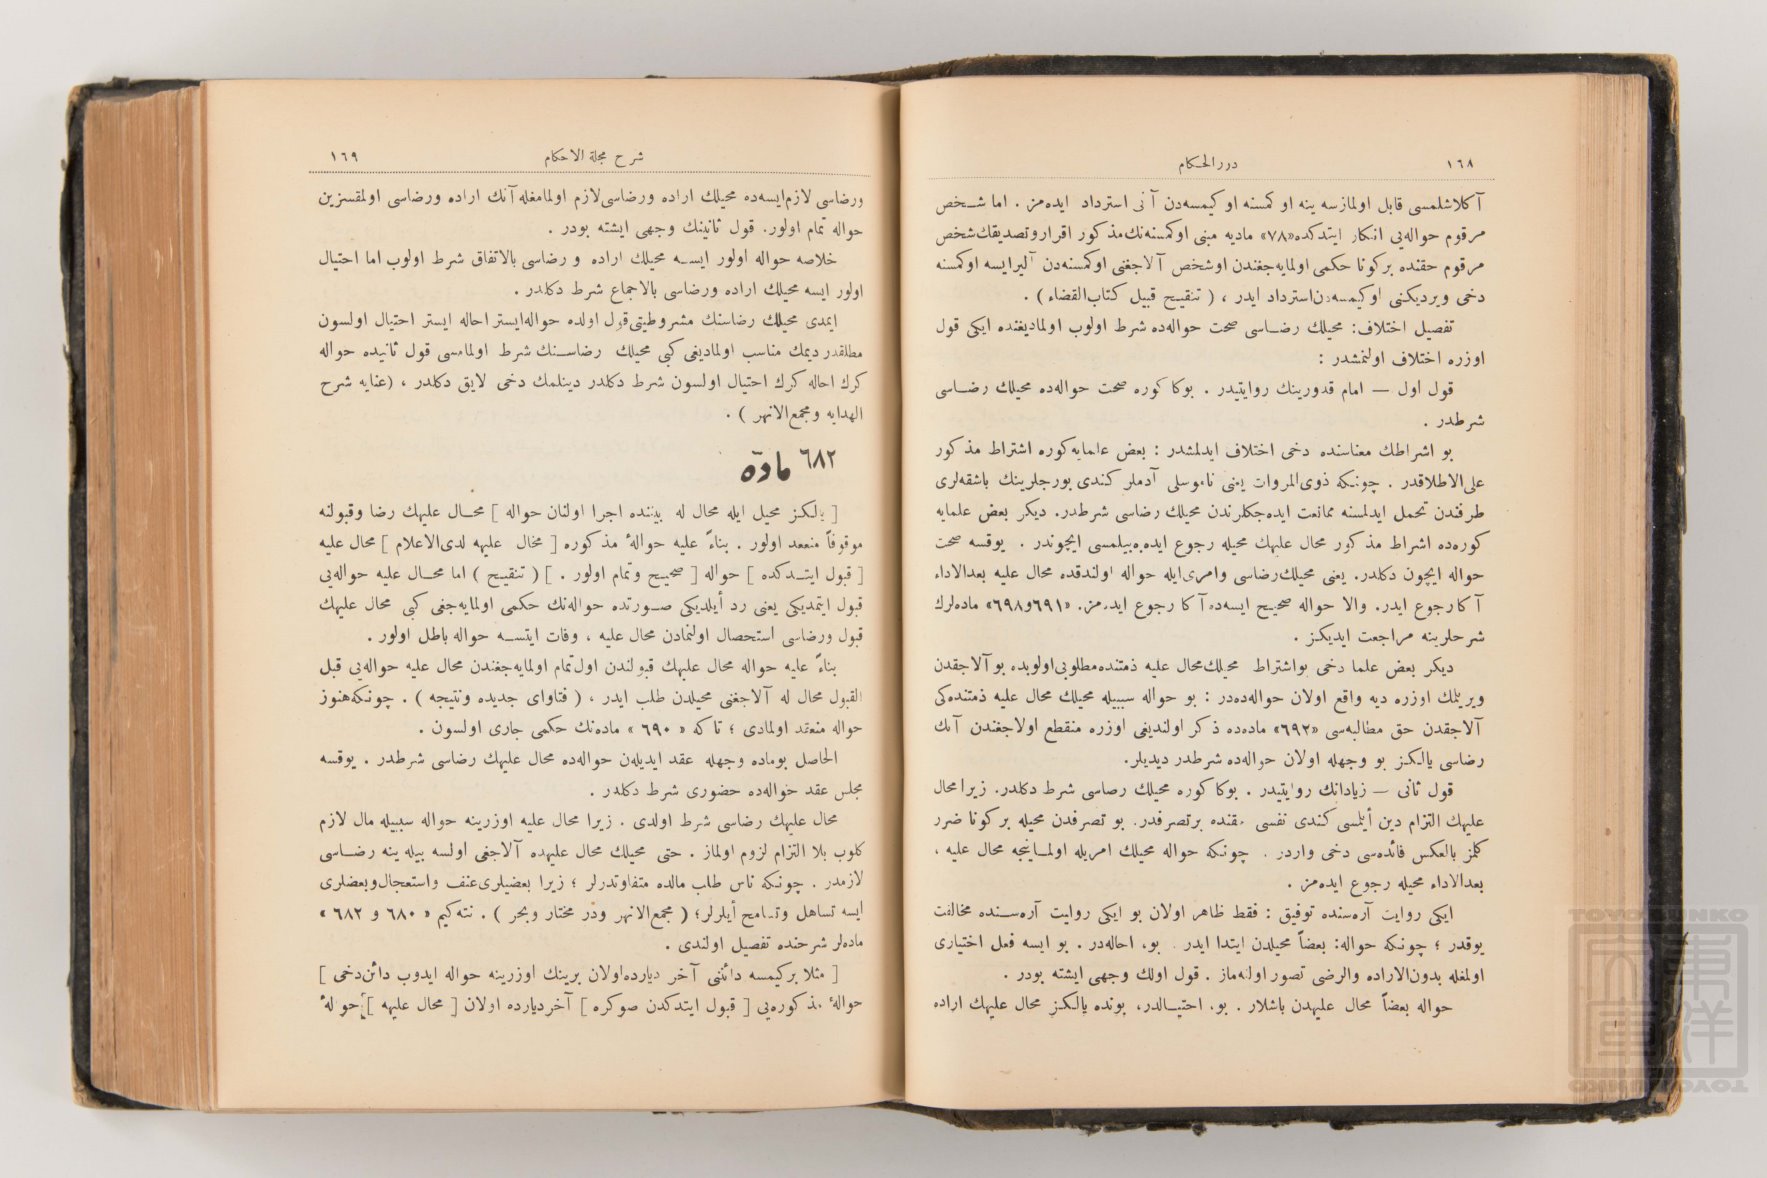 ١٦٨
دررالحكام
آكلاشلمسی قابل اولمازسه ینه او كمسنه او كیمسه‌دن آنی استرداد ایده‌مز . اما شخص
مرقوم حواله‌یی انكار ایتدكده «٧٨» مادیه مبنی اوكمسنه‌نك مذكور اقرار وتصدیقك شخص
مرقوم حقنده بركونا حكمی اولمایه‌جغندن اوشخص آلاجغنی اوكمسنه‌دن آلیرایسه اوكمسنه
دخی ویردیكنی اوكیمسه‌دن استرداد ایدر ، ( تنقیح قبیل كتاب‌القضاء ) .
تفصیل اختلاف : محیلك رضاسی صحت حواله‌ده شرط اولوب اولمادیغنده ایكی قول
اوزره اختلاف اولنمشدر :
قول اول — امام قدورینك روایتیدر . بوكا كوره صحت حواله‌ده محیلك رضاسی
شرطدر .
بو اشراطك معناسنده دخی اختلاف ایدلمشدر : بعض علمایه‌كوره اشتراط مذكور
علی‌الاطلاقدر . چونكه ذوی‌المروات یعنی ناموسلی آدملر كندی بورجلرینك باشقه‌لری
طرفندن تحمل ایدلمسنه ممانعت ایده‌جكلرندن محیلك رضاسی شرطدر. دیكر بعض علمایه
كوره‌ده اشراط مذكور محال علیهك محیله رجوع ایده‌بیلمسی ایچوندر . یوقسه صحت
حواله ایچون دكلدر. یعنی محیلك‌رضاسی وامری‌ایله حواله اولندقده محال علیه بعدالاداء
آكا رجوع ایدر. والا حواله صحیح ایسه‌ده آكا رجوع ایده‌مز. «٦٩١و٦٩٨» ماده‌لرك
شرحلرینه مراجعت ایدیكز .
دیكر بعض علما دخی بواشتراط محیلك‌محال علیه ذمتنده‌مطلوبی‌اولوبده بو آلاجقدن
ویریلمك اوزره دیه واقع اولان حواله‌ده‌در : بو حواله سببیله محیلك محال علیه ذمتنده‌كی
آلاجقدن حق مطالبه‌سی «٦٩٢» ماده‌ده ذكر اولندیغی اوزره منقطع اولاجغندن آنك
رضاسی یالكز بو وجهله اولان حواله‌ده شرطدر دیدیلر.
قول ثانی — زیاداتك روایتیدر . بوكا كوره محیلك رضاسی شرط دكلدر. زیرا محال
علیهك التزام دین أیلمسی كندی نفسی حقنده برتصرفدر. بو تصرفدن محیله بركونا ضرر
كلمز بالعكس فائده‌سی دخی واردر . چونكه حواله محیلك امریله اولماینجه محال علیه ،
بعدالاداء محیله رجوع ایده‌مز .
ایكی روایت آره‌سنده توفیق : فقط ظاهر اولان بو ایكی روایت آره‌سنده مخالفت
یوقدر ؛ چونكه حواله: بعضاً محیلدن ابتدا ایدر . بو، احاله‌در . بو ایسه فعل اختیاری
اولمغله بدون‌الاراده والرضی تصور اولنه‌ماز . قول اولك وجهی ایشته بودر .
حواله بعضاً محال علیهدن باشلار . بو، احتیالدر، بونده یالكز محال علیهك اراده
شرح مجلة الاحكام
١٦٩
ورضاسی لازم‌ایسه‌ده محیلك اراده ورضاسی‌لازم اولمامغله آنك اراده ورضاسی اولمقسزین
حواله تمام اولور. قول ثانینك وجهی ایشته بودر .
خلاصه حواله اولور ایسه محیلك اراده و رضاسی بالاتفاق شرط اولوب اما احتیال
اولور ایسه محیلك اراده ورضاسی بالاجماع شرط دكلدر .
ایمدی محیلك رضاسنك مشروطیتی‌قول اولده حواله‌ایستر احاله ایستر احتیال اولسون
مطلقدر دیمك مناسب اولمادیغی كبی محیلك رضاسنك شرط اولمامسی قول ثانیده حواله
كرك احاله كرك احتیال اولسون شرط دكلدر دینلمك دخی لایق دكلدر ، (عنایه شرح
الهدایه ومجمع‌الانهر ) .
ماده ٦٨٢
[ یالكز محیل ایله محال له بیننده اجرا اولنان حواله ] محال علیهك رضا وقبولنه
موقوفاً منعقد اولور . بناءً علیه حوالهٔ مذكوره [ محال علیهه لدی‌الاعلام ] محال علیه
[ قبول ایتدكده ] حواله [ صحیح وتمام اولور . ] ( تنقیح ) اما محال علیه حواله‌یی
قبول ایتمدیكی یعنی رد أیلدیكی صورتده حواله‌نك حكمی اولمایه‌جغی كبی محال علیهك
قبول ورضاسی استحصال اولنمادن محال علیه ، وفات ایتسه حواله باطل اولور .
بناءً علیه حواله محال علیهك قبولندن اول‌تمام اولمایه‌جغندن محال علیه حواله‌یی قبل
القبول محال له آلاجغنی محیلدن طلب ایدر ، ( فتاوای جدیده ونتیجه ) . چونكه‌هنوز
حواله منعقد اولمادی ؛ تا كه « ٦٩٠ » ماده‌نك حكمی جاری اولسون .
الحاصل بوماده وجهله عقد ایدیلن حواله‌ده محال علیهك رضاسی شرطدر . یوقسه
مجلس عقد حواله‌ده حضوری شرط دكلدر .
محال علیهك رضاسی شرط اولدی . زیرا محال علیه اوزرینه حواله سببیله مال لازم
كلوب بلا التزام لزوم اولماز . حتی محیلك محال علیهده آلاجغی اولسه بیله ینه رضاسی
لازمدر . چونكه ناس طلب مالده متفاوتدرلر ؛ زیرا بعضیلری‌عنف واستعجال‌وبعضلری
ایسه تساهل وتسامح أیلرلر؛ ( مجمع‌الانهر ودر مختار وبحر ) . نته‌كیم « ٦٨٠ و ٦٨٢ »
ماده‌لر شرحنده تفصیل اولندی .
[ مثلا بركیمسه دائننی آخر دیارده‌اولان برینك اوزرینه حواله ایدوب دائن‌دخی ]
حوالهٔ مذكوره‌یی [ قبول ایتدكدن صوكره ] آخردیارده اولان [ محال علیهه ] حوالهٔ